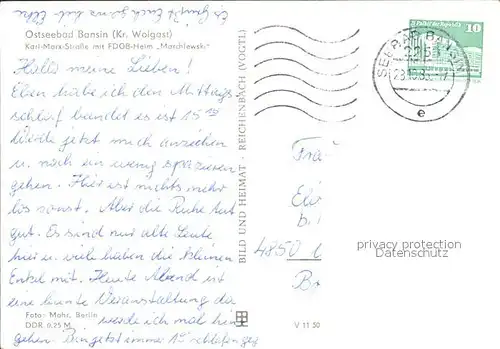 Es grüßt Euch ganz lieb Elke
Ostseebad Bansin (Kr. Wolgast)
Karl-Marx-Straße mit FDGB-Heim „Marchlewski“
Hallo meine Lieben!
Eben habe ich den Mittags-
schlaf beendet es ist 15
Werde jetzt mich anziehen
u. noch ein wenig spazieren
gehen. Hier ist nichts mehr
los sonst. Aber die Ruhe tut
gut. Es sind nur alte Leute
hier u. viele haben die kleinen
Enkel mit. Heute Abend ist
eine bunte Veranstaltung da
werde ich mal hin
gehen. Bin jetzt immer
Foto: Mohr, Berlin
DDR 0,25 M
BILD UND HEIMAT · REICHENBACH (VOGTL)
V 11 30
SEEBAD BANSIN
2255
e
10
Frau
4850
privacy protection
Datenschutz